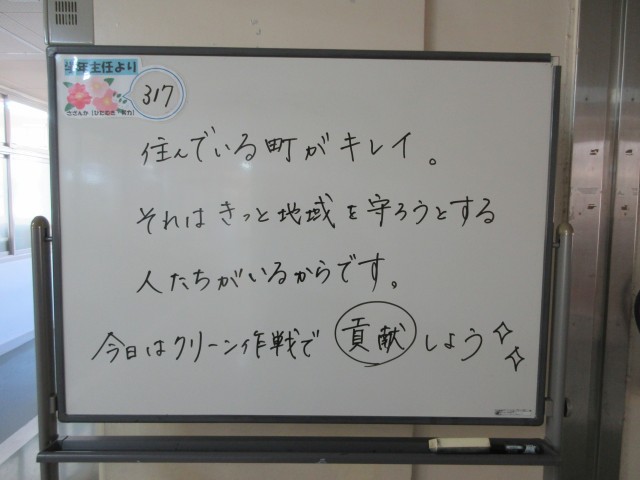 学年主任より
317
さざんか「ひたむき 努力」
住んでいる町がキレイ。
それはきっと地域を守ろうとする
人たちがいるからです。
今日はクリーン作戦で貢献しよう